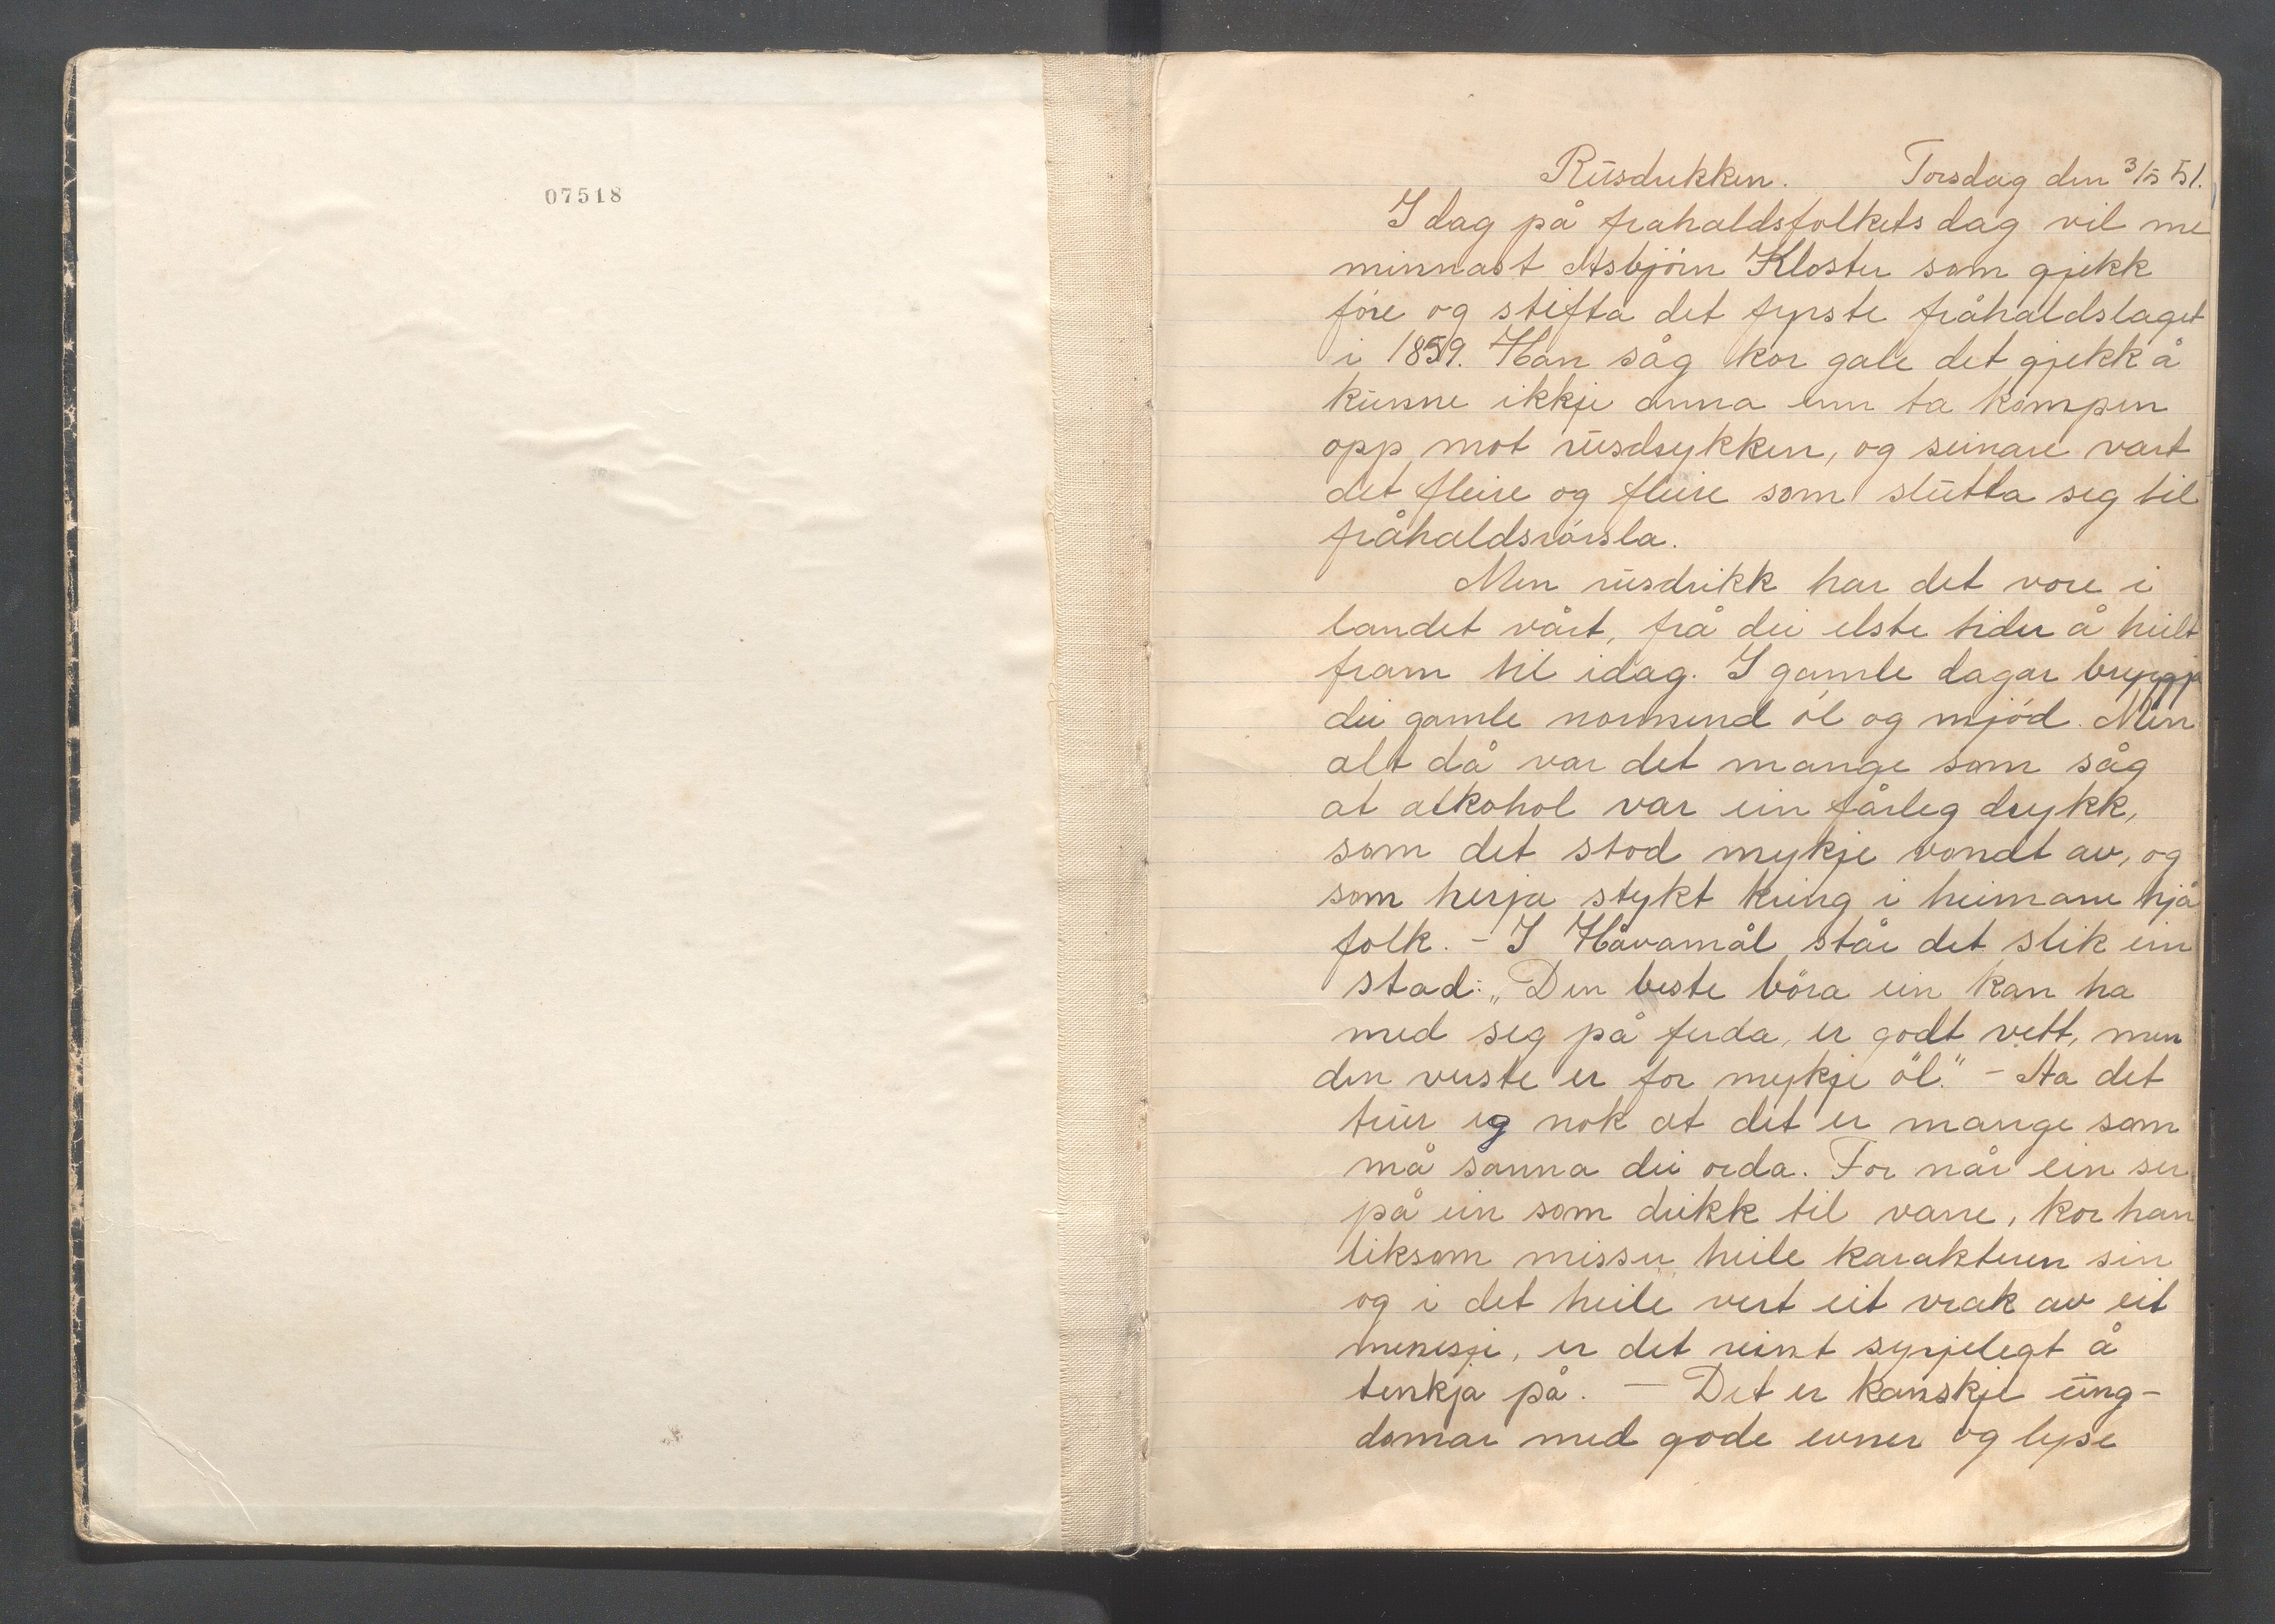 07518
Rusdrikken. Torsdag den 3/5 51.
I dag på fråhaldsfolkets dag vil me
minnast Asbjörn Kloster som gjekk
före og stifta det fyrste fråhaldslaget
i 1859. Han såg kor gale det gjekk å
kunne ikkje anna enn ta kampen
opp mot rusdrykken, og seinare vart
det fleire og fleire som slutta seg til
fråhaldsrörsla.
Men rusdrikk har det vore i
landet vårt, frå dei elste tider å heilt
fram til idag. I gamle dagar bryggja
dei gamle normend öl og mjöd. Men
alt då var det mange som såg
at alkohol var ein fårleg drykk,
som det stod mykje vondt av, og
som herja stykt kring i heimane hjå
folk. - I Håvamål står det slik ein
stad: „Den beste böra ein kan ha
med seg på ferda, er godt vett, men
den verste er for mykje öl." - Ha det
trur eg nok at det er mange som
må sanna dei orda. For når ein ser
på ein som drikk til vane, kor han
liksom misser heile karakteren sin
og i det heile vert eit vrak av eit
menesje, er det reint syrjelegt å
tenkja på. - Det er kanskje ung-
domar med gode evner og lyse